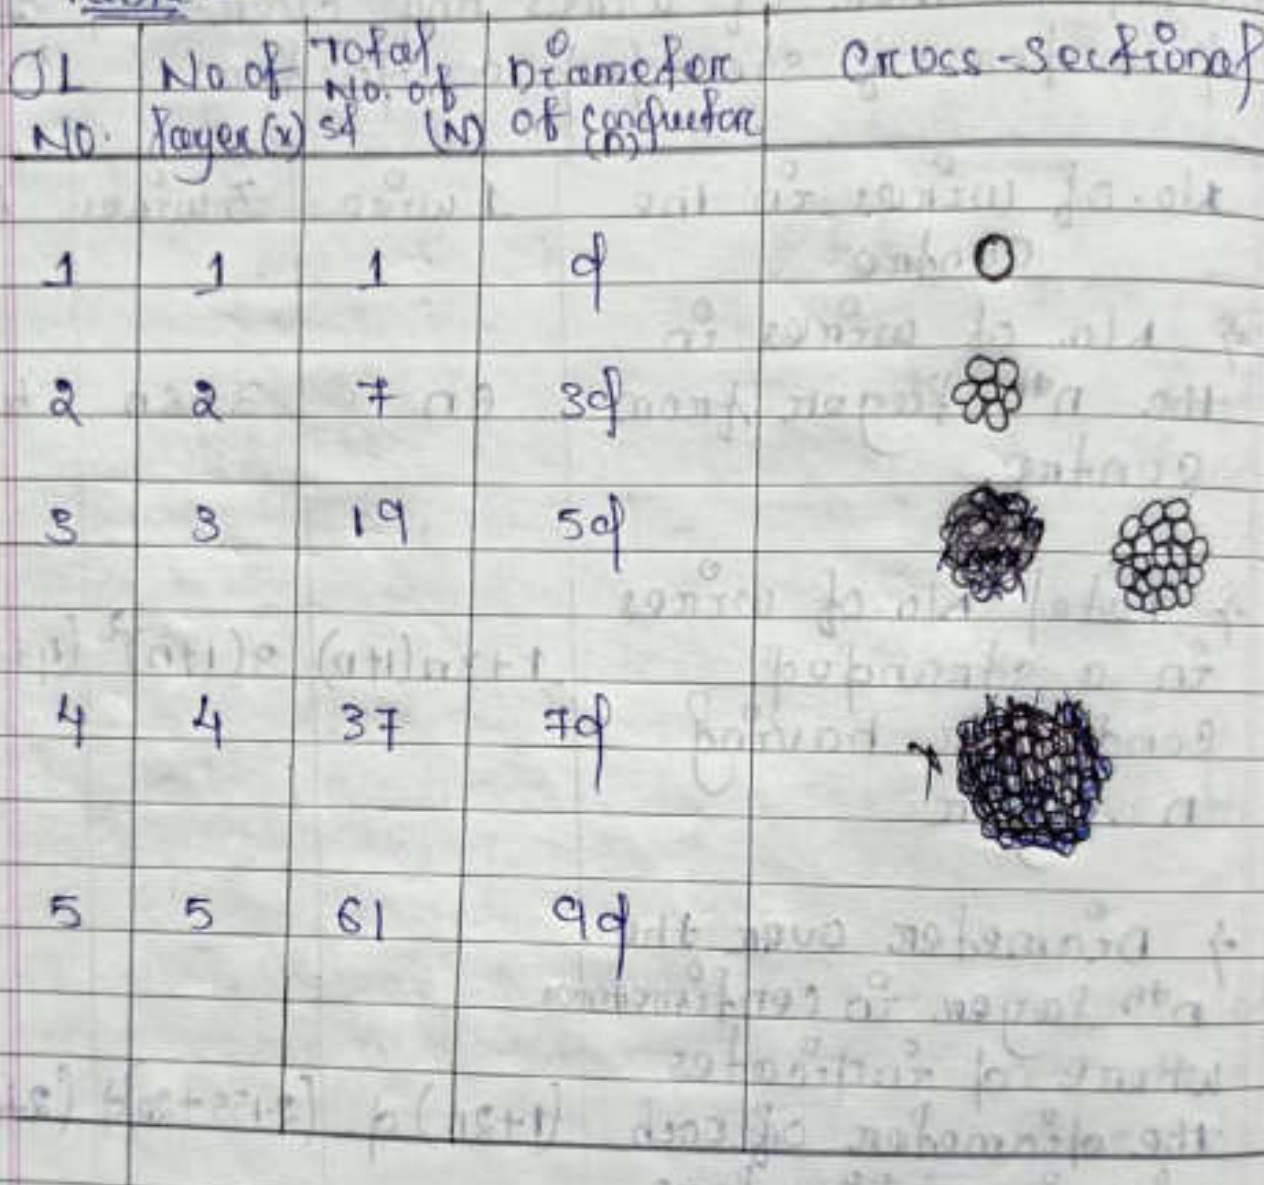 Table
SL NO.
No. of layer (x)
Total No. of st (N)
Diameter of conductor (D)
Cross-sectional
1 1 1 d
2 2 7 3d
3 3 19 5d
4 4 37 7d
5 5 61 9d